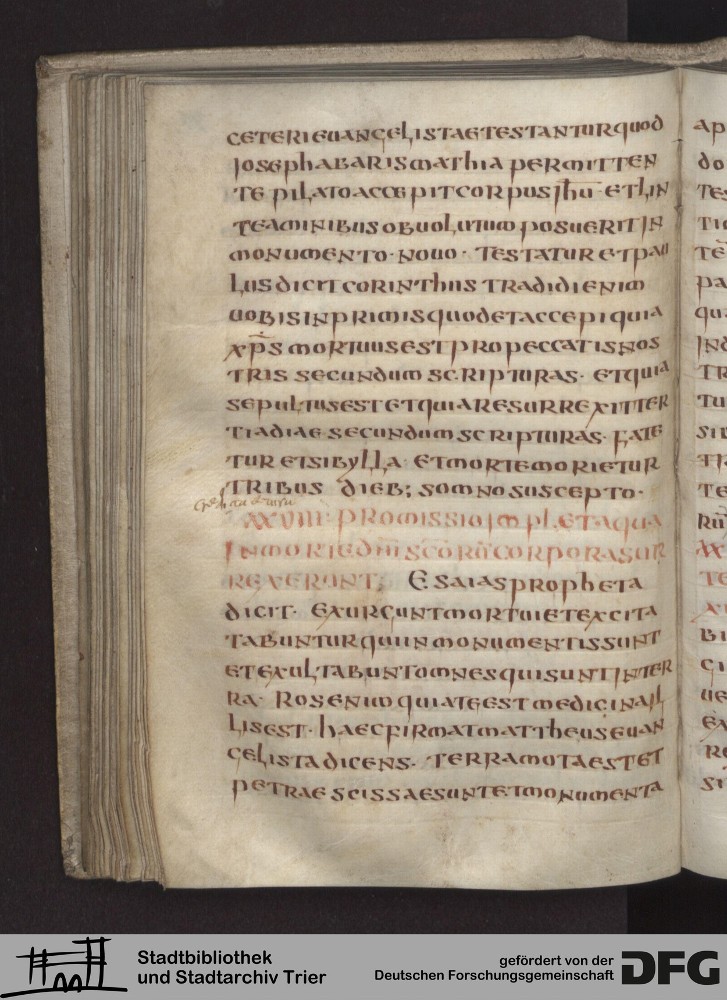 ceteri euangelistae testantur quod
ioseph abarismathia permitten
te pilato accepit corpus ihu · et lin
teaminibus obuolutum posuerit in
monumento · nouo · testatur et pau
lus dicit corinthiis tradidi enim
uobis in primis quod et accepi quia
xps mortuus est pro peccatis nos
tris secundum scripturas · et quia
sepultus est et quia resurrexit ter
tia diae secundum scripturas · fate
tur et sibylla · et morte morietur
tribus dieb; somno suscepto ·
XXVIIII promissio impleta qua
in morte dni scoru corpora sur
rexerunt; Esaias propheta
dicit · exurgunt mortui et excita
tabuntur qui in monumentis sunt
et exultabunt omnes qui sunt in ter
ra · ros enim qui a te est medicina il
lis est · haec firmat mattheus euan
gelista dicens · terra mota est et
petrae scissae sunt et monumenta
ap
do
tes
te
pa
qu
ind
tr
tu
te
te
bi
ue
ex
re
si
Stadtbibliothek
und Stadtarchiv Trier
gefördert von der
Deutschen Forschungsgemeinschaft
DFG